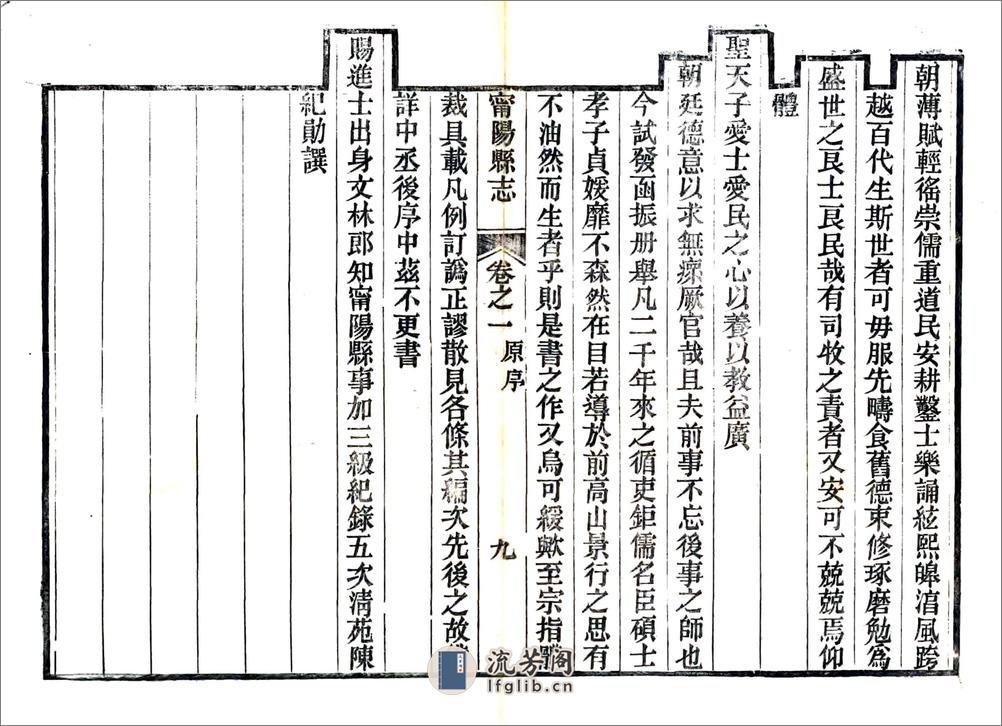 朝薄賦輕徭崇儒重道民安耕鑿士樂誦絃熙皡湻風跨
越百代生斯世者可毋服先疇食舊德束修琢磨勉為
盛世之良士良民哉有司牧之責者又安可不兢兢焉仰
體
聖天子愛士愛民之心以養以教益廣
朝廷德意以求無瘝厥官哉且夫前事不忘後事之師也
今試發函振册舉凡二千年來之循吏鉅儒名臣碩士
孝子貞媛靡不森然在目若導於前高山景行之思有
不油然而生者乎則是書之作又烏可緩歟至宗指
甯陽縣志
卷之一
原序
九
裁具載凡例訂譌正謬散見各條其編次先後之故
詳中丞後序中茲不更書
賜進士出身文林郎知甯陽縣事加三級紀錄五次淸苑陳
紀勛譔
流芳阁
lfglib.cn